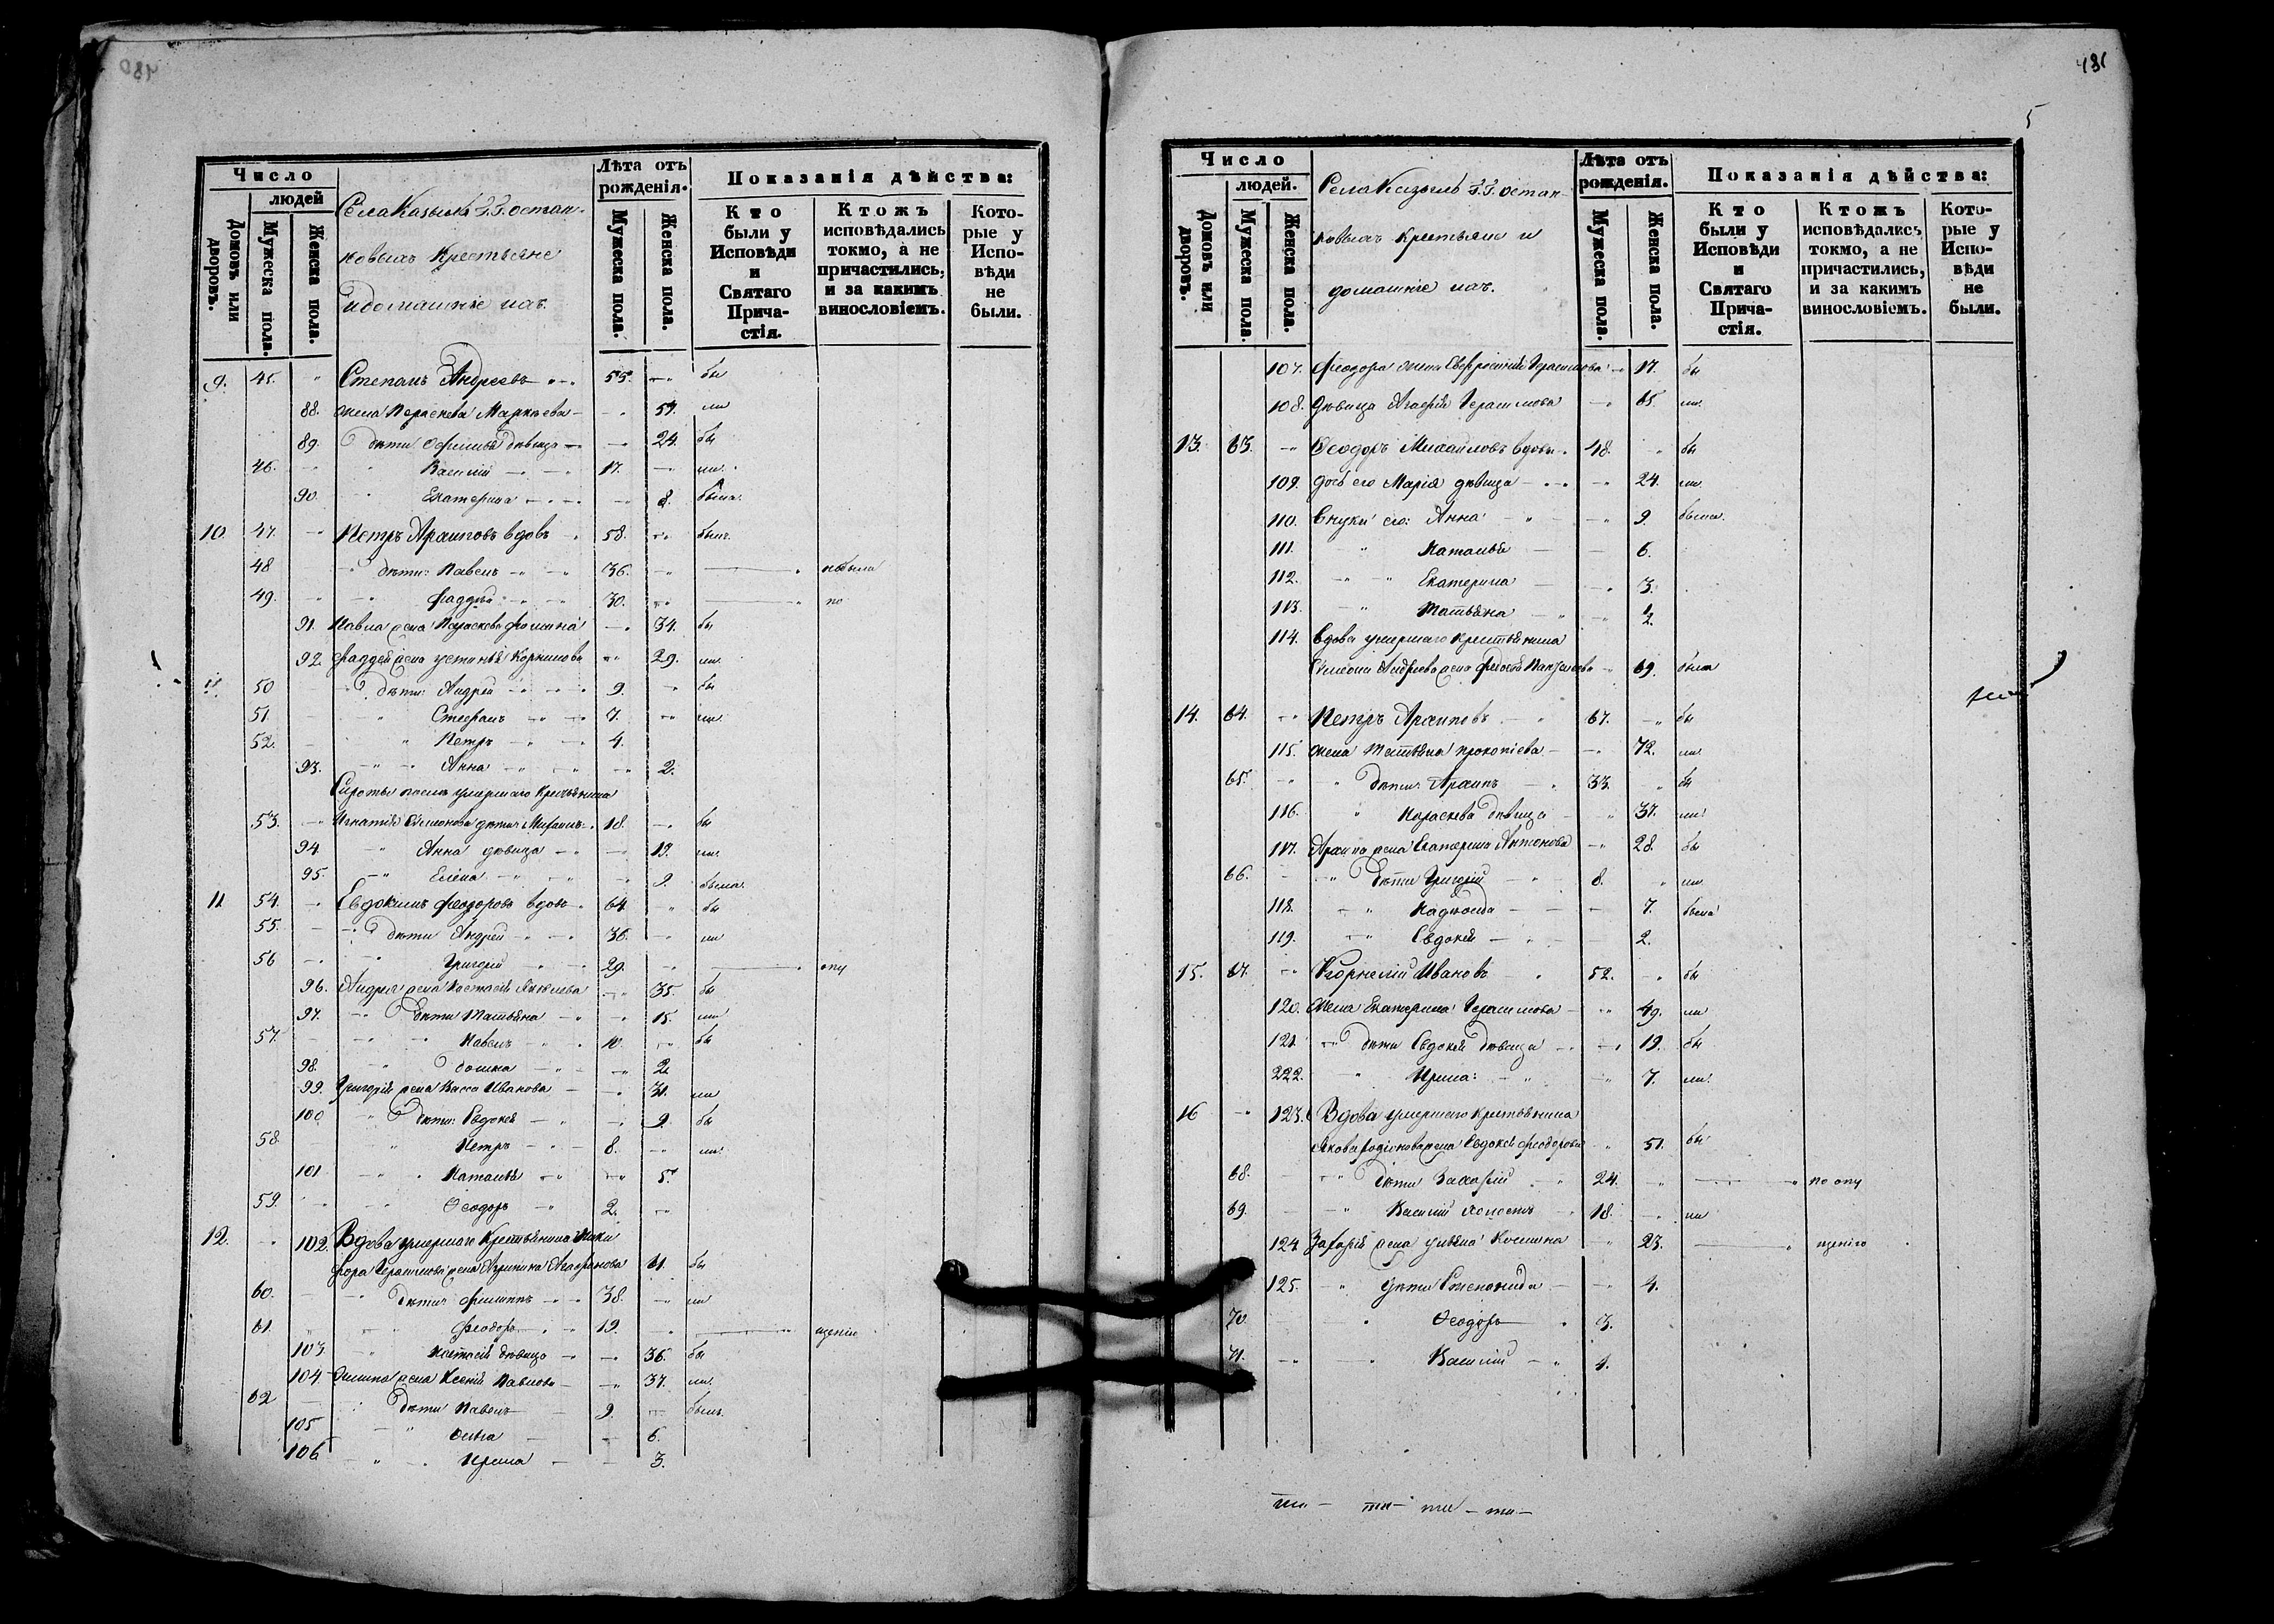 480
Число
Лѣта отъ рожденія.
Показанія дѣйства:
людей
Домовъ или дворовъ.
Мужеска пола.
Женска пола.
Села
новыхъ Крестьяне
и домашніе ихъ.
Мужеска пола.
Женска пола.
Кто были у Исповѣди и Святаго Причастія.
Ктожъ исповѣдались токмо, а не причастились, и за какимъ винословіемъ.
Которые у Исповѣди не были.
9. 45. Степанъ Андреевъ 55. бы
88. жена Параскева 59. ли
89. дѣти дѣвица 24. бы
46. Василій 17. ли.
90. Екатерина 8. была.
10. 47. Петръ Архиповъ вдовъ 58. былъ
48 дѣти: Павелъ 36.
49. Фаддѣй 30. по
91. Павла жена Параскева Фомина 34. бы
92. Фаддея жена Устинья Корнилова 29. ли.
50 дѣти: Андрей 9. бы
51. Стефанъ 7. ли.
52. Петръ 4.
93. Анна 2.
Сироты послѣ умершаго Крестьянина
53. Игнатія Симеонова дѣти: Михаилъ 18. бы
94. Анна дѣвица 19. ли.
95. Елена 9. была.
11 54. Евдокимъ Феодоровъ вдовъ 64. бы
55. дѣти Андрей 36. ли
56 Григорій 29. опу
96. Андрея жена Настасія Яковлева 35. бы
97. дѣти Татьяна 15. ли
57. Павелъ 10. бы
98. Домна 2.
99. Григорія жена Васса Иванова 31. ли
100 дѣти: Евдокія 9. бы
58 Петръ 8. ли.
101 Наталья 5.
59. Ѳеодоръ 2.
12. 102. Вдова умершаго Крестьянина Ники
фора Герасимова жена 61. бы
60. дѣти: Филиппъ 38. ли
61. Феодоръ 19. щенію
103. Настасія дѣвица 36. бы
104. жена Ксенія Павлова 37. ли.
62 дѣти Павелъ 9. былъ.
105 6.
106 Ирина 3.
481
5
Число
Лѣта отъ рожденія.
Показанія дѣйства:
людей.
Домовъ или дворовъ.
Мужеска пола.
Женска пола.
Села
новыхъ Крестьяне и
домашніе ихъ.
Мужеска пола.
Женска пола.
Кто были у Исповѣди и Святаго Причастія.
Ктожъ исповѣдались токмо, а не причастились, и за какимъ винословіемъ.
Которые у Исповѣди не были.
107. Феодора жена Евфросинія Герасимова 17. бы
108. дѣвица Агафія Герасимова 65. ли.
13. 63. Ѳеодоръ Михайловъ вдовъ 48. бы
109. дочь его Марія дѣвица 24. ли.
110. Внуки его: Анна 9. была.
111. Наталья 6.
112. Екатерина 3.
113. Татьяна 2.
114. Вдова умершаго Крестьянина
Симеона Андреева жена 69. была
14. 64. Петръ Архиповъ 67. бы
115. жена Татьяна Прокопіева 72. ли.
65. дѣти: Архипъ 33. бы
116. Параскева дѣвица 37. ли
117. Архипа жена Екатерина Антонова 28. бы
66. дѣти Григорій 8. ли
118. Надежда 7. была
119. Евдокія 2.
15. 67. Корнелій Ивановъ 52. бы
120. жена Екатерина Герасимова 49. ли
121. дѣти Евдокія дѣвица 19. бы
222. Ирина: 7. ли.
16 123. Вдова умершаго Крестьянина
Якова Родіонова жена Евдокія Феодорова 51. бы
68. дѣти Захарій 24. по опу
69. Василій холостъ 18. ли
124 Захарія жена Ульяна 23. щенію
125. дѣти Степанида 4.
70. Ѳеодоръ 3.
71. Василій 1.
ти – ти – ти – ти –